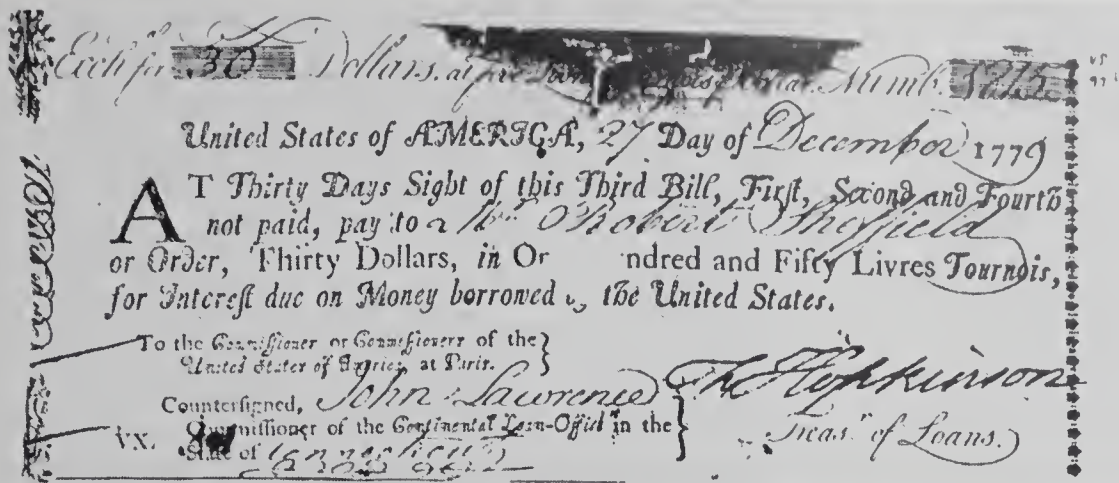 Exch. for 30 Dollars, at five Livres Numb.
United States of AMERICA, 27 Day of December 1779
AT Thirty Days Sight of this Third Bill, First, Second and Fourth
not paid, pay to a Mr Robert Sheffield
or Order, Thirty Dollars, in Or ndred and Fifty Livres Tournois,
for Interest due on Money borrowed the United States.
To the Commissioner or Commissioners of the
United States of America, at Paris.
Countersigned, John Lawrence
Commissioner of the Continental Loan-Office in the
State of Connecticut
Hopkinson
Treasr of Loans.